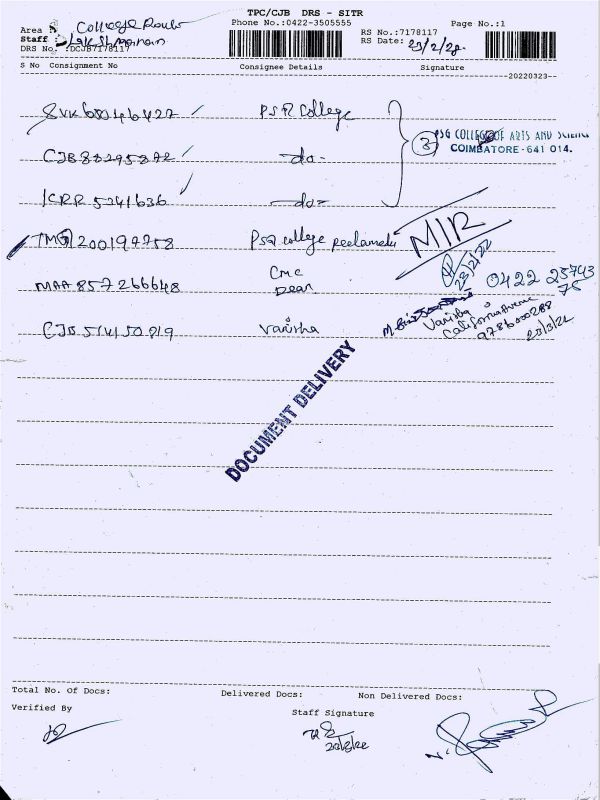 TPC/CJB DRS - SITR
Phone No.:0422-3505555
Page No.:1
Area : College Road
Staff : Lakshmanan
DRS No. :DCJB7178117
RS No.:7178117
RS Date: 23/2/22
S No Consignment No Consignee Details Signature
20220323
SVK680346427 PSR College
CJB88295872 -do-
KRR 5241636 -do-
3
PSG COLLEGE OF ARTS AND SCIENCE
COIMBATORE - 641 014.
TMG 200199758 PSR college peelamedu
MIR
23/2/22
MAA 857266648 CMC
Dean
0422 25743
75
CJB 514150819 Varisha
Varisha
California Avenue
9786500288
23/3/22
DOCUMENT DELIVERY
Total No. Of Docs: Delivered Docs: Non Delivered Docs:
Verified By
Staff Signature
23/3/22